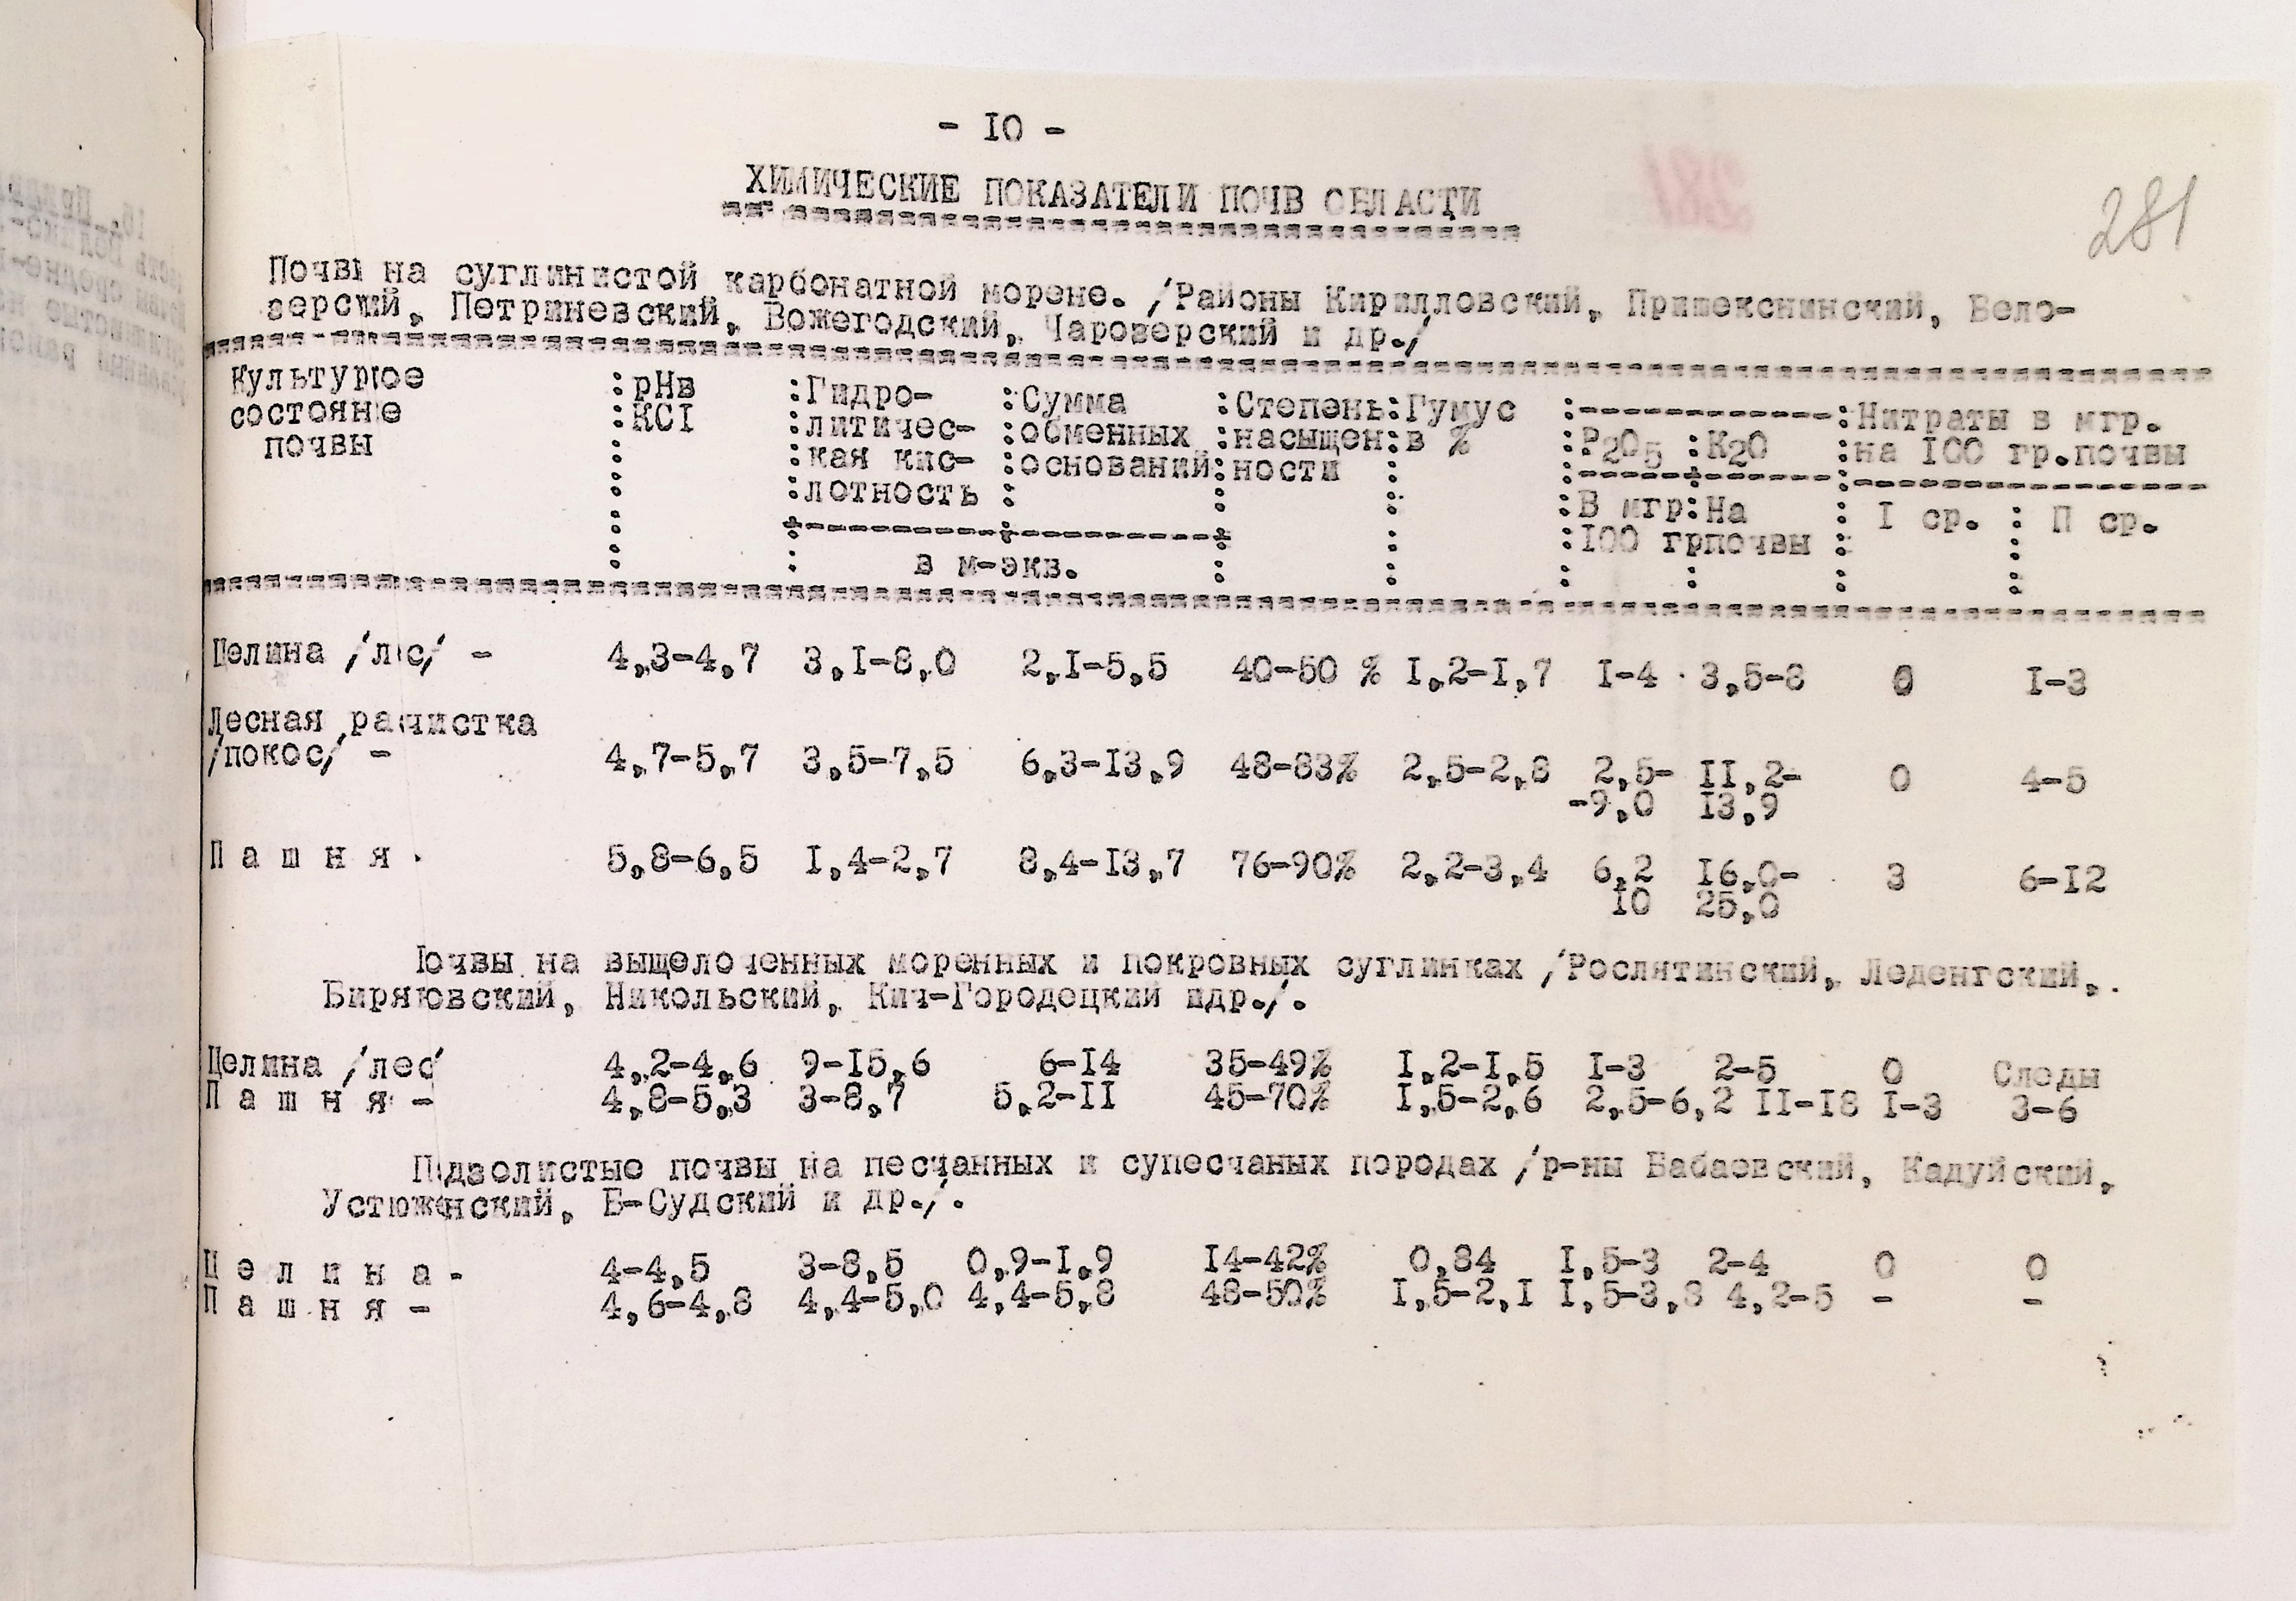 - 10 -
281
ХИМИЧЕСКИЕ ПОКАЗАТЕЛИ ПОЧВ ОБЛАСТИ
Почвы на суглинистой карбонатной морене. /Районы Кирилловский, Пришекснинский, Бело-
зерский, Петриневский, Вожегодский, Чарозерский и др./
Культурное :рНв :Гидро- :Сумма :Степень:Гумус :------------:Нитраты в мгр.
состояние :KCI :литичес- :обменных :насыщен:в % :P2O5 :K2O :на 100 гр.почвы
почвы :кая кис- :оснований:ности
:лотность :
:В мгр:На : I ср. : П ср.
:100 грпочвы :
в м-экв.
Целина /лес/ - 4,3-4,7 3,1-8,0 2,1-5,5 40-50 % 1,2-1,7 1-4 3,5-8 0 1-3
Лесная расчистка
/покос/ - 4,7-5,7 3,5-7,5 6,3-13,9 48-83% 2,5-2,8 2,5- 11,2- 0 4-5
-9,0 13,9
П а ш н я 5,8-6,5 1,4-2,7 8,4-13,7 76-90% 2,2-3,4 6,2 16,0- 3 6-12
10 25,0
Почвы на выщелоченных моренных и покровных суглинках /Рослятинский, Леденгский,
Биряковский, Никольский, Кич-Городецкий идр./.
Целина /лес/ 4,2-4,6 9-15,6 6-14 35-49% 1,2-1,5 1-3 2-5 0 Следы
П а ш н я - 4,8-5,3 3-8,7 5,2-11 45-70% 1,5-2,6 2,5-6,2 11-18 1-3 3-6
Подзолистые почвы на песчанных и супесчаных породах /р-ны Бабаевский, Кадуйский,
Устюженский, Б-Судский и др./.
Ц е л и н а - 4-4,5 3-8,5 0,9-1,9 14-42% 0,84 1,5-3 2-4 0 0
П а ш н я - 4,6-4,8 4,4-5,0 4,4-5,8 48-50% 1,5-2,1 1,5-3,8 4,2-5 - -